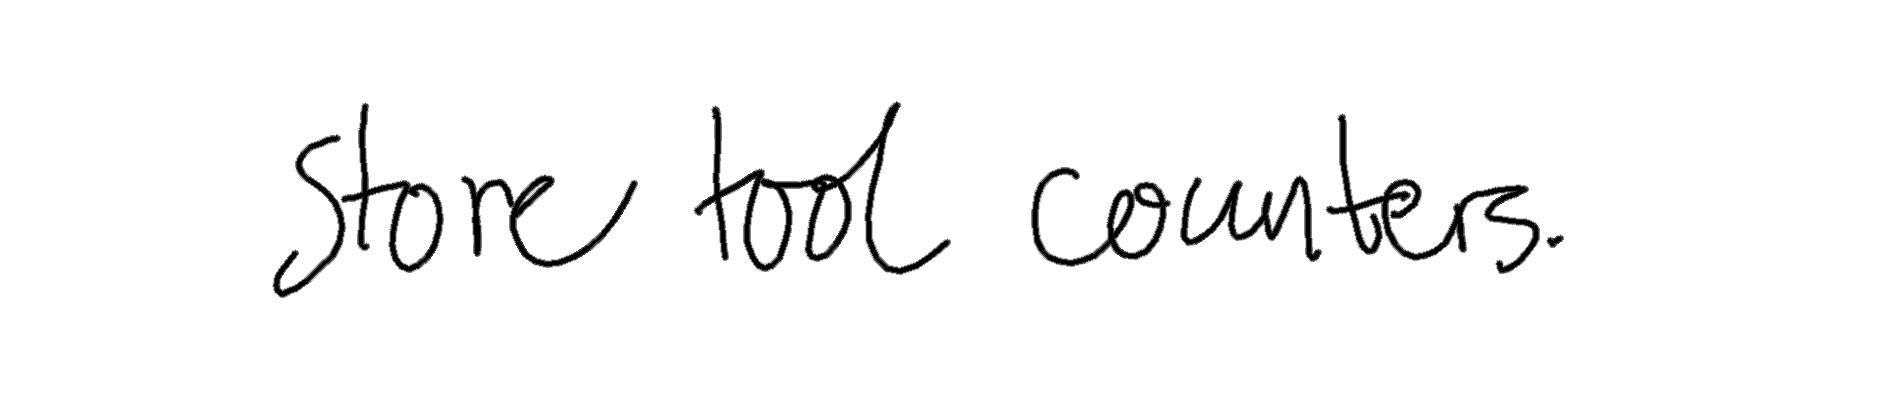 Store tool counters.